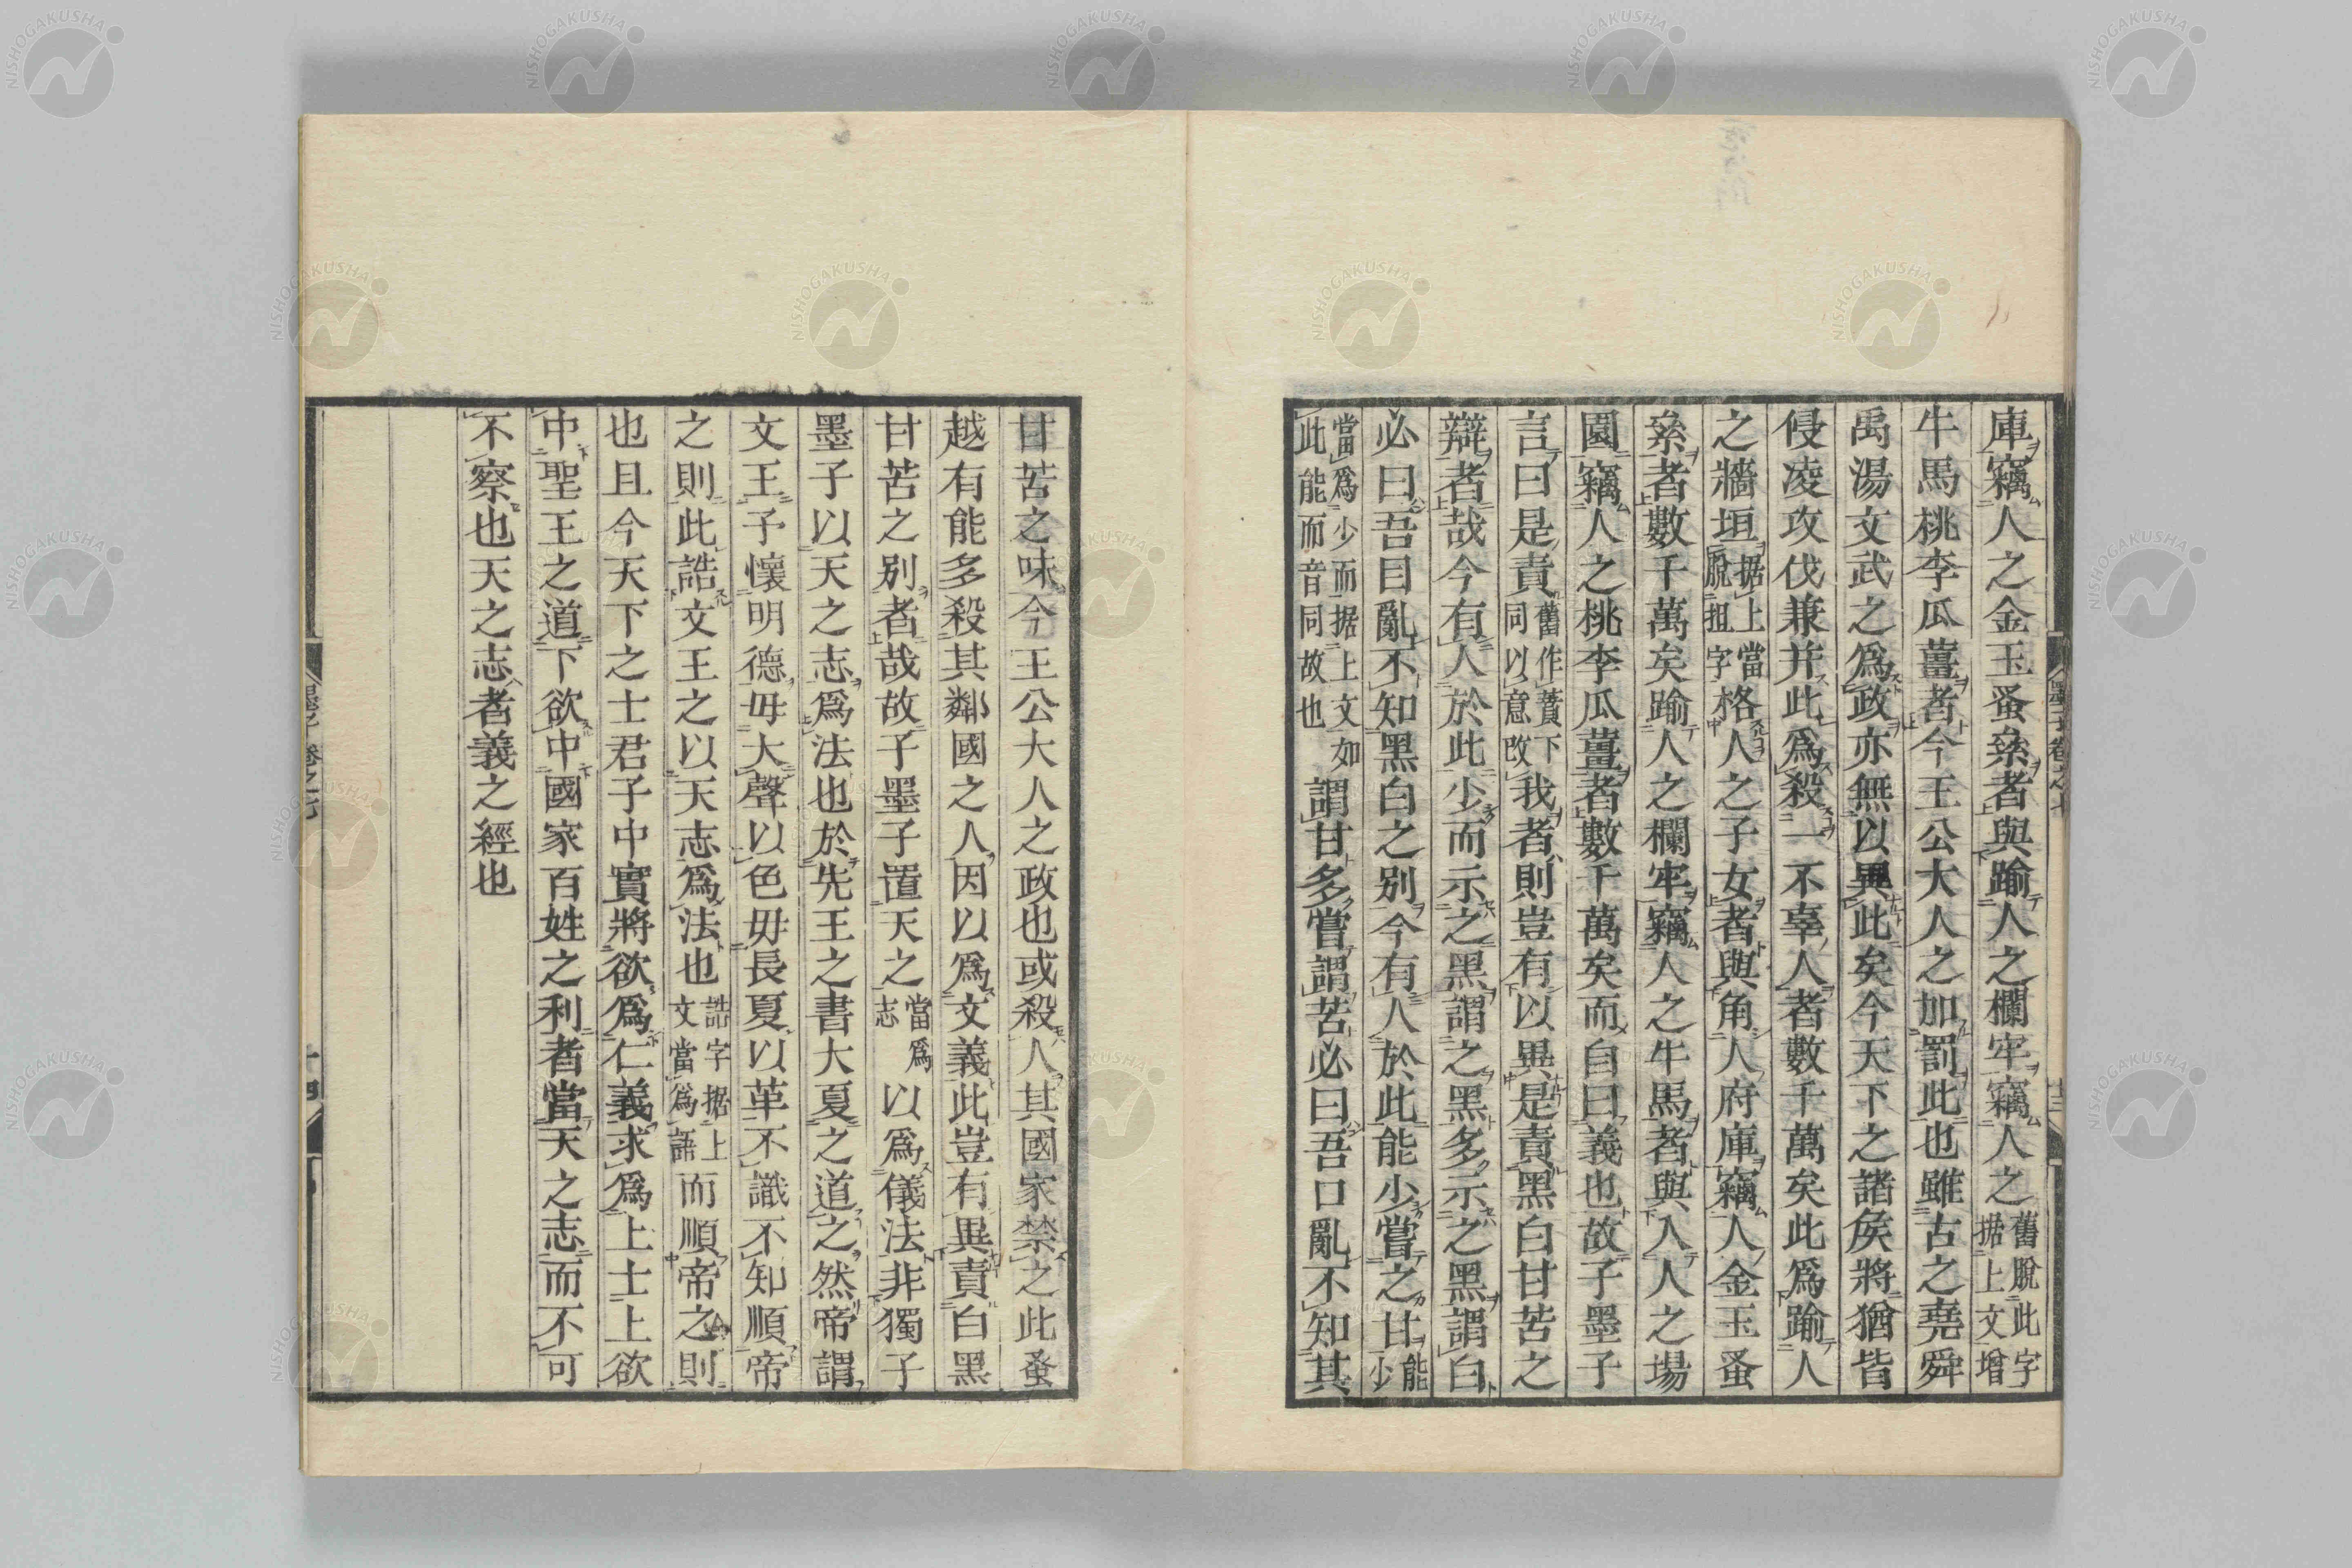 庫竊人之金玉蚤絫者與踰人之欄牢竊人之舊脫此字据上文增
牛馬桃李瓜薑者今王公大人之加罰此也雖古之堯舜
禹湯文武之爲政亦無以異此矣今天下之諸侯將猶皆
侵凌攻伐兼并此爲殺一不辜人者數千萬矣此爲踰人
之牆垣据上當脫抯字格人之子女者與角人府庫竊人金玉蚤
絫者數千萬矣踰人之欄牢竊人之牛馬者與入人之場
園竊人之桃李瓜薑者數千萬矣而自曰義也故子墨子
言曰是蕡舊作蕡下同以意改我者則豈有以異是蕡黑白甘苦之
辯者哉今有人於此少而示之黑謂之黑多示之黑謂白
必曰吾目亂不知黑白之別今有人於此能少嘗之甘能少
當爲少而据上文如此能而音同故也謂甘多嘗謂苦必曰吾口亂不知其
甘苦之味今王公大人之政也或殺人其國家禁之此蚤
越有能多殺其鄰國之人因以爲文義此豈有異蕡白黑
甘苦之別者哉故子墨子置天之當爲志以爲儀法非獨子
墨子以天之志爲法也於先王之書大夏之道之然帝謂
文王予懷明德毋大聲以色毋長夏以革不識不知順帝
之則此誥文王之以天志爲法也誥字据上文當爲語而順帝之則
也且今天下之士君子中實將欲爲仁義求爲上士上欲
中聖王之道下欲中國家百姓之利者當天之志而不可
不察也天之志者義之經也
墨子卷之七
十四
NISHOGAKUSHA